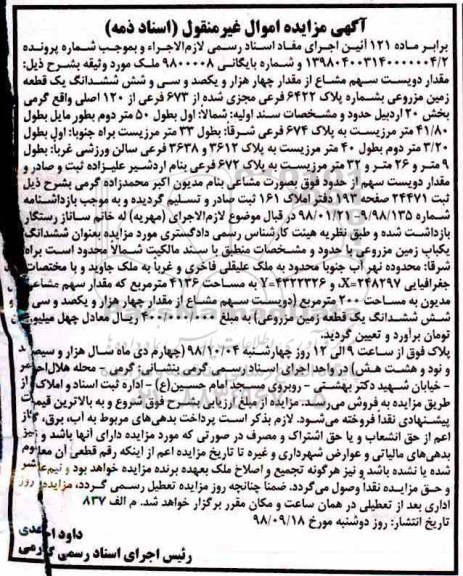 آگهی مزایده اموال غیرمنقول (اسناد ذمه)
برابر ماده ۱۲۱ آئین اجرای مفاد اسناد رسمی لازم‌الاجراء و بموجب شماره پرونده
۱۳۹۸۰۴۰۰۳۱۴۰۰۰۰۰۰۴/۲ و شماره بایگانی ۹۸۰۰۰۰۸ ملک مورد وثیقه بشرح ذیل:
مقدار دویست سهم مشاع از مقدار چهار هزار و یکصد و سی و شش ششدانگ یک قطعه
زمین مزروعی بشماره پلاک ۶۴۲۲ فرعی مجزی شده از ۶۷۳ فرعی از ۱۲۰ اصلی واقع گرمی
بخش ۲۰ اردبیل حدود و مشخصات سند اولیه: شمالا: اول بطول ۵۰ متر دوم بطور مایل بطول
۴۱/۸۰ متر مرزیست به پلاک ۶۷۴ فرعی شرقا: بطول ۳۳ متر مرزیست براه جنوبا: اول بطول
۳/۲۰ متر دوم بطول ۴۰ متر مرزیست به پلاک ۳۶۱۲ و ۳۶۳۸ فرعی سالن ورزشی غربا: بطول
۹ متر و ۲۶ متر و ۳۲ متر مرزیست به پلاک ۶۷۲ فرعی بنام اردشیر علیزاده ثبت و صادر و
مقدار دویست سهم از حدود فوق بصورت مشاعی بنام مدیون اکبر محمدزاده گرمی بشرح ذیل
ثبت ۲۴۴۷۱ صفحه ۱۹۳ دفتر املاک ۱۶۱ ثبت صادر و تسلیم گردیده و به موجب بازداشتنامه
شماره ۹/۹۸/۱۳۵-۹۸/۰۱/۲۱ در قبال موضوع لازم‌الاجرای (مهریه) له خانم ساناز رستگار
بازداشت شده و طبق نظریه هیئت کارشناس رسمی دادگستری مورد مزایده بعنوان ششدانگ
یکباب زمین مزروعی با حدود و مشخصات منطبق با سند مالکیت شمالا محدود است براه
شرقا: محدوده نهر آب جنوبا محدود به ملک علیقلی فاخری و غربا به ملک جاوید و با مختصات
جغرافیایی X=۲۴۸۲۹۷، Y=۴۳۲۲۳۲۶ به مساحت ۴۱۳۶ مترمربع که مقدار سهم مشاعی
مدیون به مساحت ۲۰۰ مترمربع (دویست سهم مشاع از مقدار چهار هزار و یکصد و سی و
شش ششدانگ یک قطعه زمین مزروعی) به مبلغ ۴۰۰۰۰۰۰۰۰ ریال معادل چهل میلیون
تومان برآورد و تعیین گردید.
پلاک فوق از ساعت ۹ الی ۱۲ روز چهارشنبه ۹۸/۱۰/۰۴ (چهارم دی ماه سال هزار و سیصد
و نود و هشت هـ.ش) در واحد اجرای اسناد رسمی گرمی بنشانی: گرمی - محله هلال‌احمر
- خیابان شهید دکتر بهشتی - روبروی مسجد امام حسین(ع) - اداره ثبت اسناد و املاک از
طریق مزایده به فروش می‌رسد. مزایده از مبلغ ارزیابی بشرح فوق شروع و به بالاترین قیمت
پیشنهادی نقداً فروخته می‌شود. لازم بذکر است پرداخت بدهی‌های مربوط به آب، برق، گاز
اعم از حق انشعاب و یا حق اشتراک و مصرف در صورتی که مورد مزایده دارای آنها باشد و نیز
بدهی‌های مالیاتی و عوارض شهرداری و غیره تا تاریخ مزایده اعم از اینکه رقم قطعی آن معلوم
شده یا نشده باشد و نیز هرگونه تجمیع و اصلاح ملک بعهده برنده مزایده خواهد بود و نیم‌عشر
و حق مزایده نقدا وصول می‌گردد. ضمنا چنانچه روز مزایده تعطیل رسمی گردد، مزایده روز
اداری بعد از تعطیلی در همان ساعت و مکان مقرر برگزار خواهد شد. م الف ۸۳۷
تاریخ انتشار: روز دوشنبه مورخ ۹۸/۰۹/۱۸
داود احمدی
رئیس اجرای اسناد رسمی گرمی